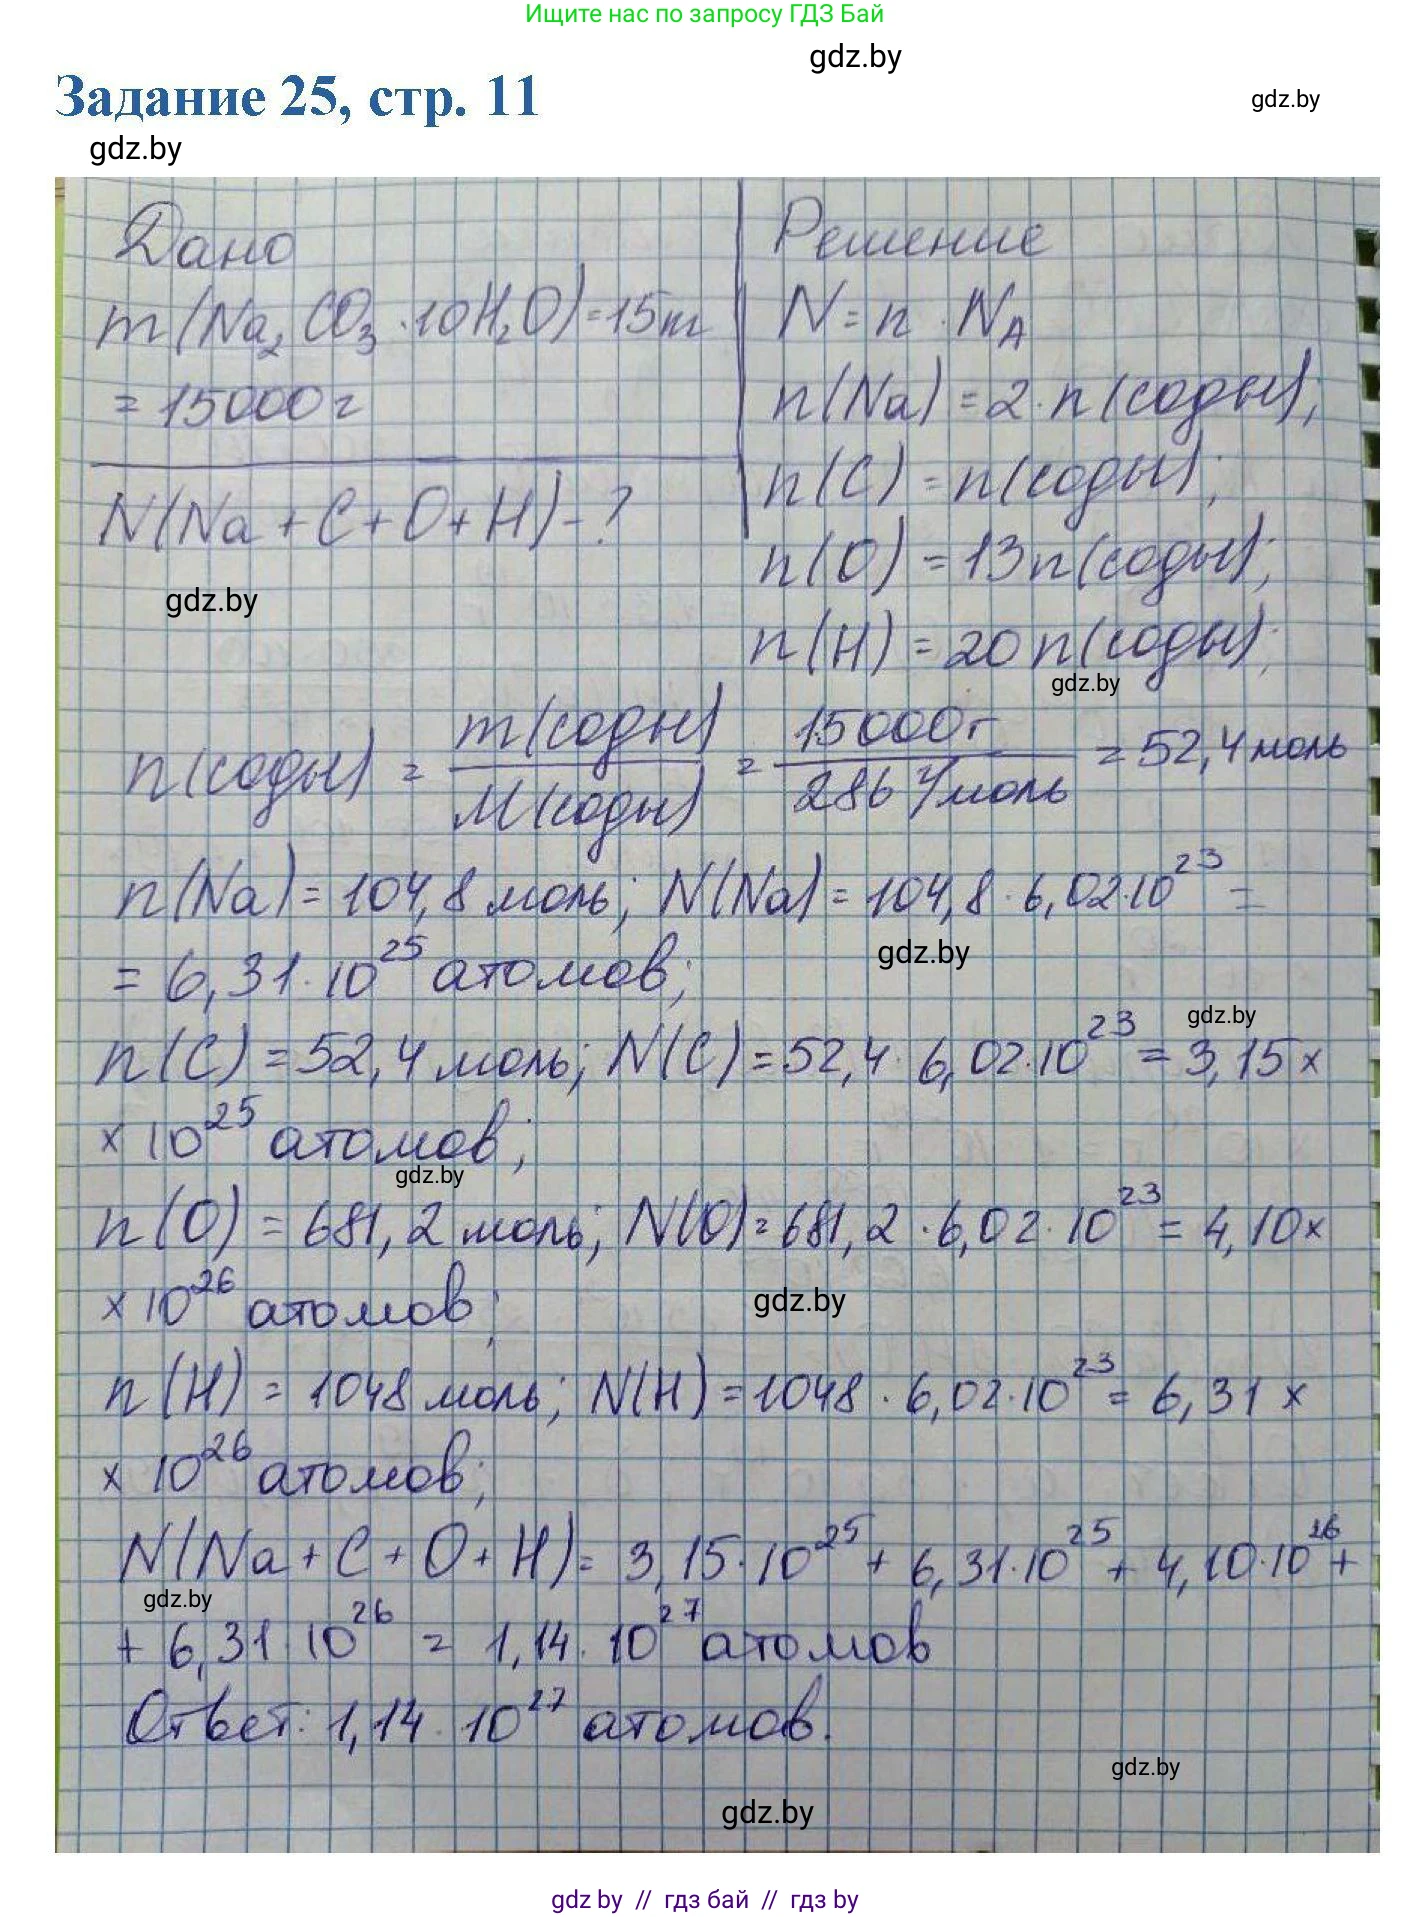 Ищите нас по запросу ГДЗ Бай
gdz.by
Задание 25, стр. 11
gdz.by
gdz.by
Дано
m(Na₂CO₃·10H₂O)=15т
=15000г
N(Na+C+O+H)-?
gdz.by
Решение
N=n·N_A
n(Na)=2·n(соды);
n(C)=n(соды);
n(O)=13n(соды);
n(H)=20n(соды);
gdz.by
n(соды) = m(соды)/M(соды) = 15000г/286 г/моль = 52,4 моль
n(Na)=104,8 моль; N(Na)=104,8·6,02·10²³=
=6,31·10²⁵ атомов;
gdz.by
gdz.by
n(C)=52,4 моль; N(C)=52,4·6,02·10²³=3,15×
×10²⁵ атомов;
gdz.by
n(O)=681,2 моль; N(O)=681,2·6,02·10²³=4,10×
×10²⁶ атомов;
gdz.by
n(H)=1048 моль; N(H)=1048·6,02·10²³=6,31×
×10²⁶ атомов;
N(Na+C+O+H)=3,15·10²⁵+6,31·10²⁵+4,10·10²⁶+
gdz.by
+6,31·10²⁶=1,14·10²⁷ атомов
Ответ: 1,14·10²⁷ атомов.
gdz.by
gdz.by
gdz by // гдз бай // гдз by